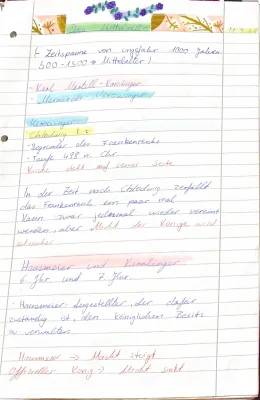 Das Mittelalter
(- Zeitspanne von ungefähr 1000 Jahren
500 - 1500 → Mittelalter)
- Karl Martell - Karolinger
- Merowinger
Merowinger
Chlodwig I.
- Begründer des Frankenreichs
- Taufe 498 n. Chr.
Kirche steht auf seiner Seite
In der Zeit nach Chlodwig zerfällt
das Frankenreich ein paar mal
Kann zwar jedesmal wieder vereint
werden, aber Macht der Könige wird
schwächer
Hausmeier und Karolinger
6 Jhr und 7 Jhr.
- Hausmeier: Angestellter, der dafür
zuständig ist, den königlichen Besitz
zu verwalten.
Hausmeier → Macht steigt
Offizieller König → Macht sinkt